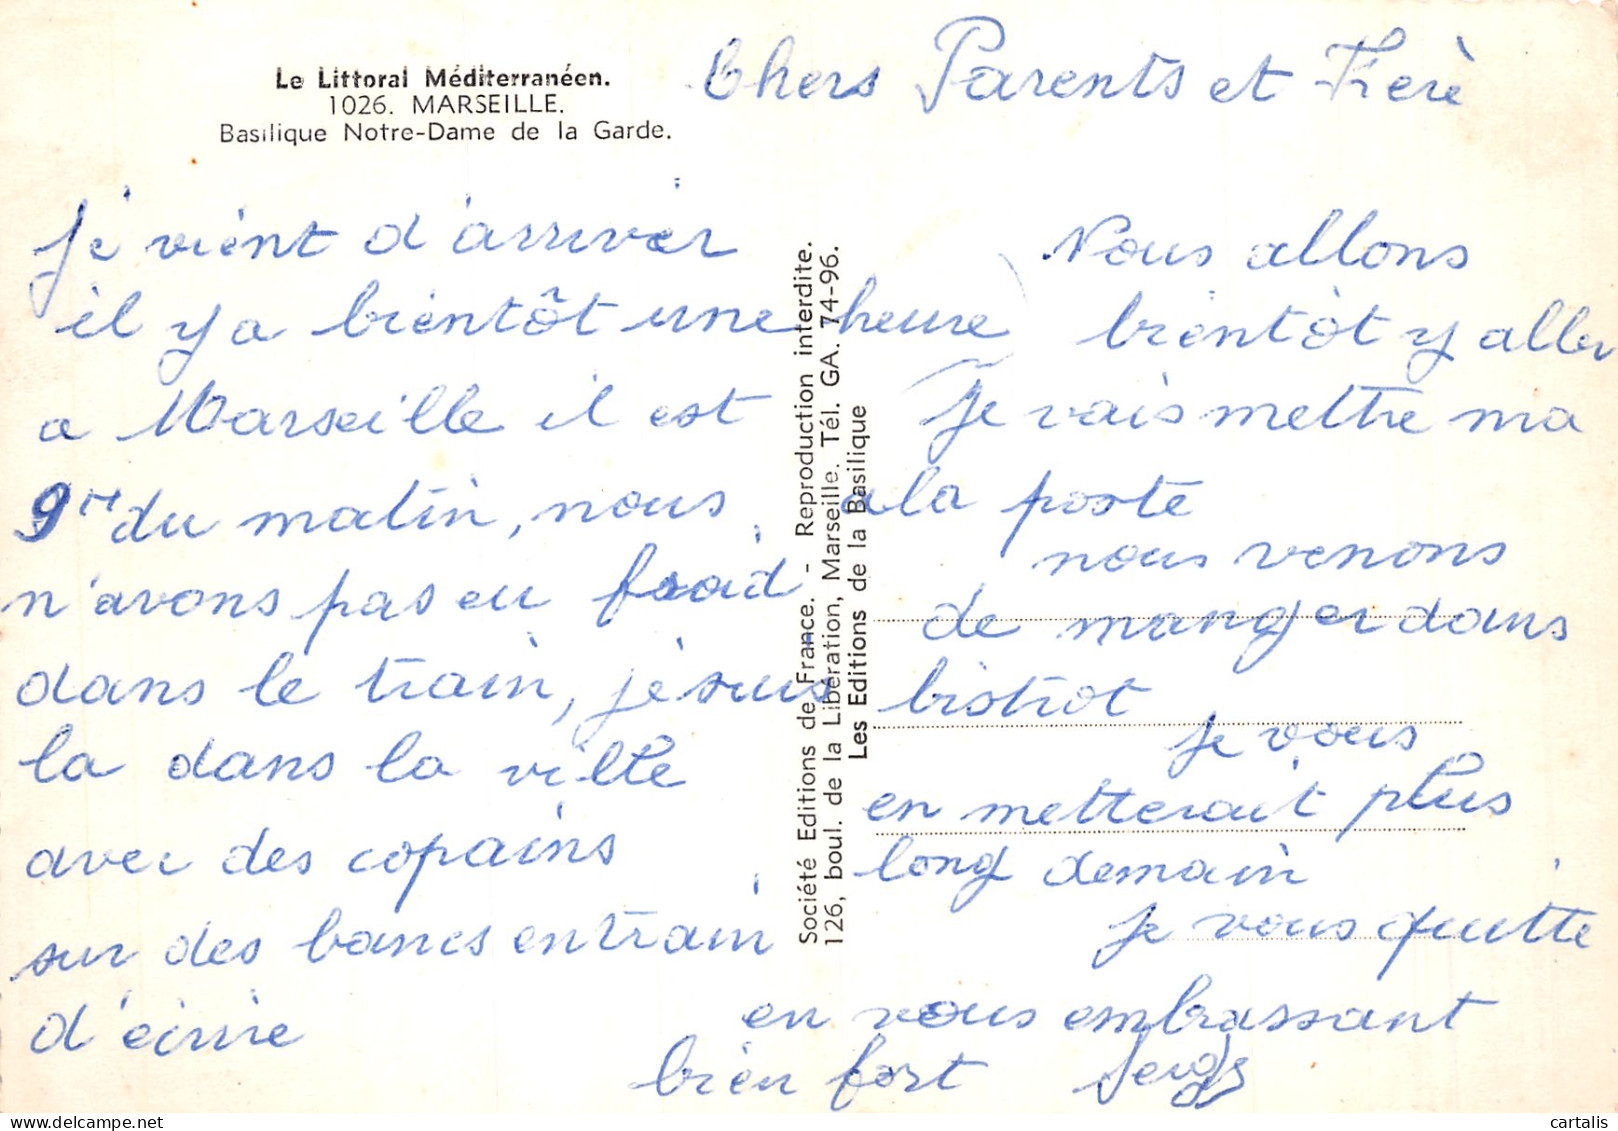 Le Littoral Méditerranéen.
1026. MARSEILLE.
Basilique Notre-Dame de la Garde.
Chers Parents et Frerè
Je vient d'arriver
il y a bientôt une heure
a Marseille il est
9 du matin, nous
n'avons pas eu froid
dans le train, je suis
la dans la ville
avec des copains
sur des bancs entrain
d'écrire
Société Editions de France. - Reproduction interdite.
126, boul. de la Libération, Marseille. Tél. GA. 74-96.
Les Editions de la Basilique
Nous allons
bientôt y aller
Je vais mettre ma
a la poste
nous venons
de manger dans
bistrot
je vous
en metterait plus
long demain
je vous quitte
en vous embrassant
bien fort Serge
cartalis